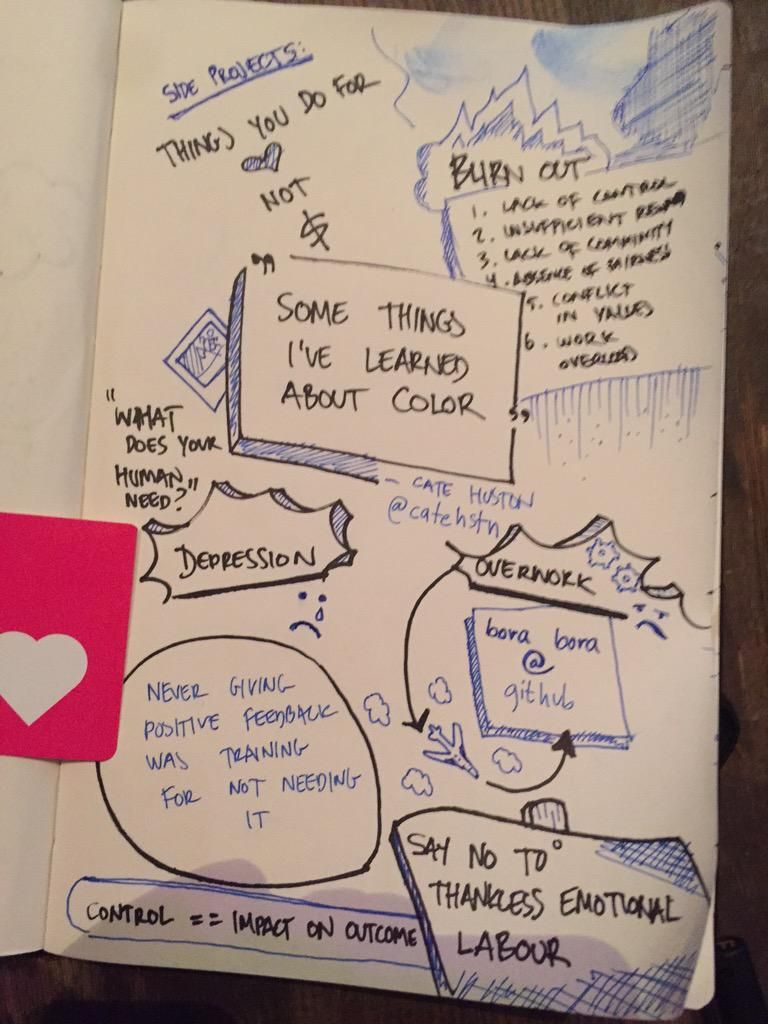 SIDE PROJECTS:
THINGS YOU DO FOR
NOT
$
BURN OUT
1. LACK OF CONTROL
2. INSUFFICIENT
3. LACK OF COMMUNITY
4. ABSENCE OF FAIRNESS
5. CONFLICT
IN VALUES
6. WORK
OVERLOAD
"
SOME THINGS
I'VE LEARNED
ABOUT COLOR
"
- CATE HUSTON
@catehstn
"WHAT
DOES YOUR
HUMAN
NEED?"
DEPRESSION
OVERWORK
bora bora
@
github
NEVER GIVING
POSITIVE FEEDBACK
WAS TRAINING
FOR NOT NEEDING
IT
SAY NO TO
THANKLESS EMOTIONAL
LABOUR
CONTROL == IMPACT ON OUTCOME